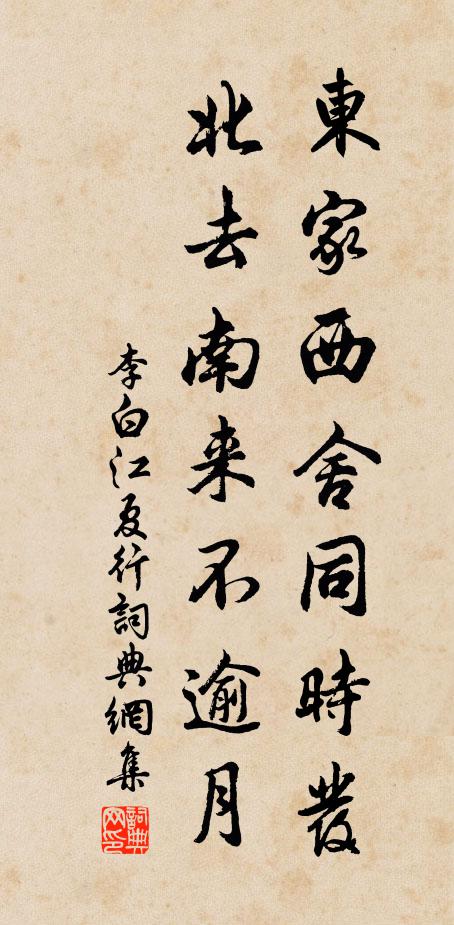 東家西舍同時發
北去南来不逾月
李白江夏行詞典網集
詞典网印